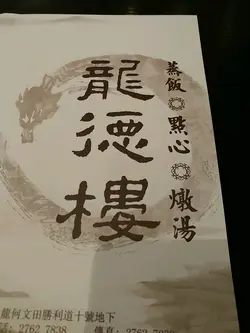 龍德樓
蒸飯 點心 燉湯
龍何文田勝利道十號地下
話: 2762 7838 傳真: 2762